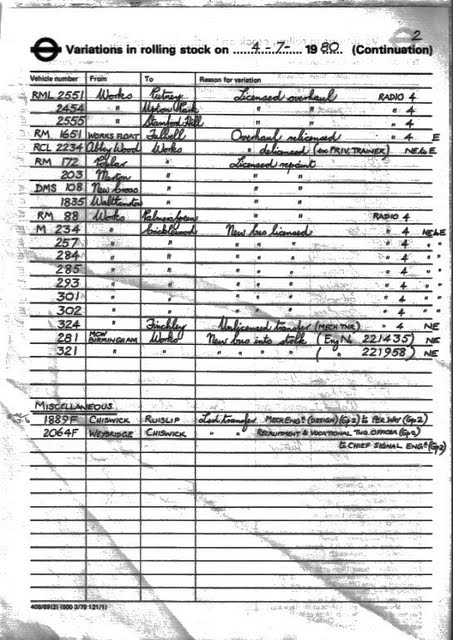 2
Variations in rolling stock on 4-7- 1980 (Continuation)
Vehicle number From To Reason for variation
RML 2551 Works Putney Licensed overhaul RADIO 4
2454 " Upton Park " " " 4
2555 " Stamford Hill " " " 4
RM 1651 WORKS FLOAT Fulwell Overhaul relicensed " 4 E
RCL 2234 Abbey Wood Works " delicensed (ex PRIV. TRAINER) NE&E
RM 172 Poplar " Licensed repaint
203 Merton " " "
DMS 108 New Cross " " "
1835 Walthamstow " " "
RM 88 Works Palmers Green " " RADIO 4
M 234 " Cricklewood New bus licensed " 4 NE&E
257 " " " " " " 4 " "
284 " " " " " " 4 " "
285 " " " " " " 4 " "
293 " " " " " " 4 " "
301 " " " " " " 4 " "
302 " " " " " " 4 " "
324 " Finchley Unlicensed transfer (MECH THR) " 4 NE
281 MCW BIRMINGHAM Works New bus into stock (Eng No 221435) NE
321 " " " " " " ( " 221958) NE
MISCELLANEOUS
1889F CHISWICK RUISLIP Loct transfer MECH ENGR (DESIGN) (Gp2) to PER WAY (Gp2)
2064F WEYBRIDGE CHISWICK " " RECRUITMENT & VOCATIONAL TNG. OFFICER (Gp2)
to CHIEF SIGNAL ENGR (Gp2)
409/89(2) (500 3/78 121/1)